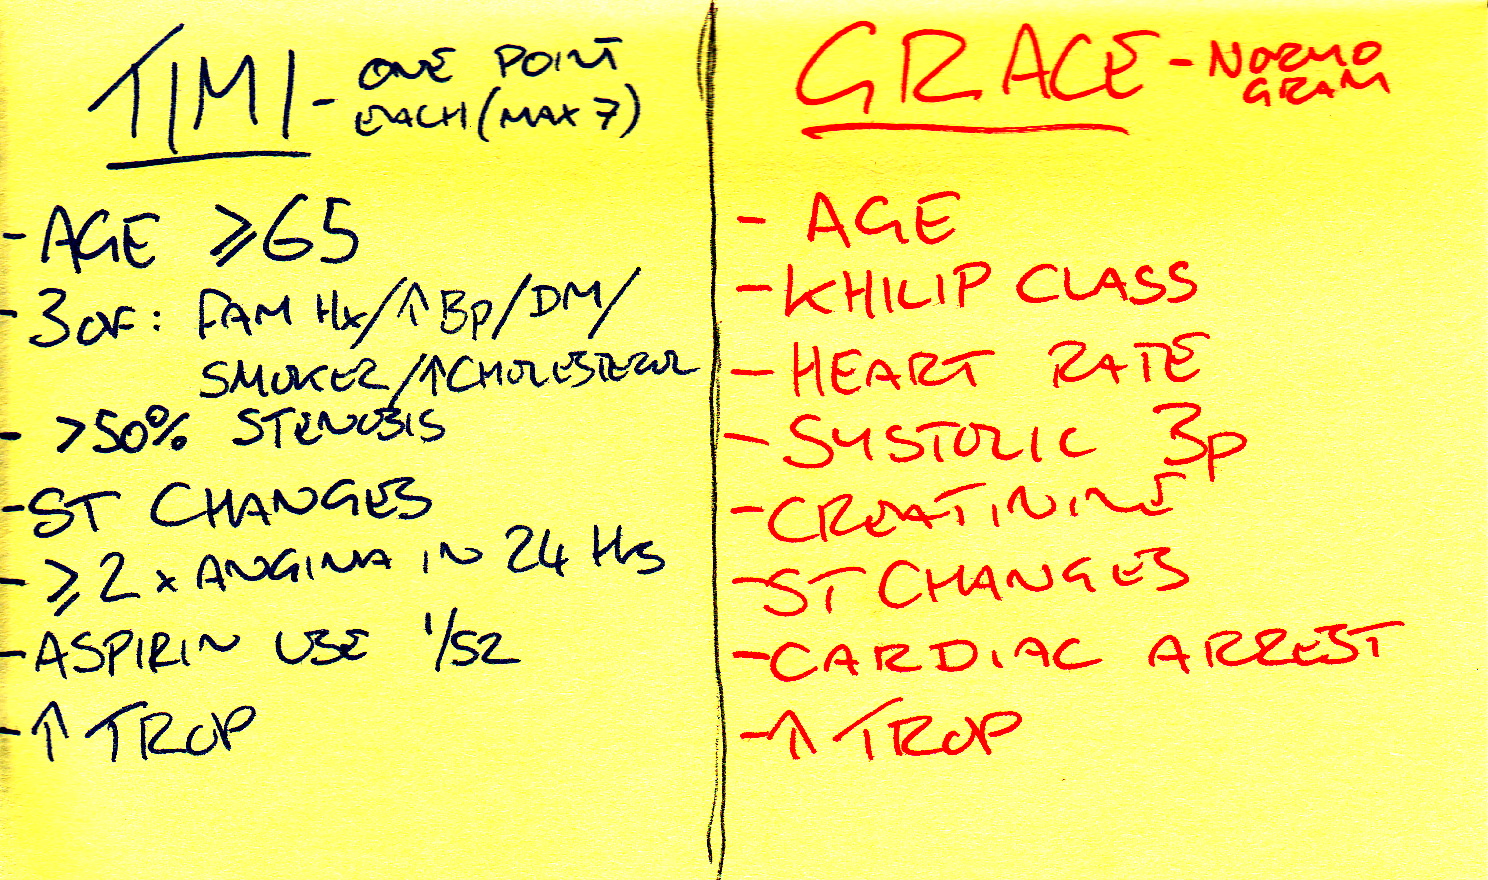 TIMI - ONE POINT
EACH (MAX 7)
- AGE ≥65
- 3 OF: FAM Hx/↑BP/DM/
SMOKER/↑CHOLESTEROL
- >50% STENOSIS
- ST CHANGES
- ≥2 x ANGINA IN 24 Hrs
- ASPIRIN USE 1/52
- ↑ TROP
GRACE - NORMO
GRAM
- AGE
- KHILIP CLASS
- HEART RATE
- SYSTOLIC BP
- CREATININE
- ST CHANGES
- CARDIAC ARREST
- ↑ TROP